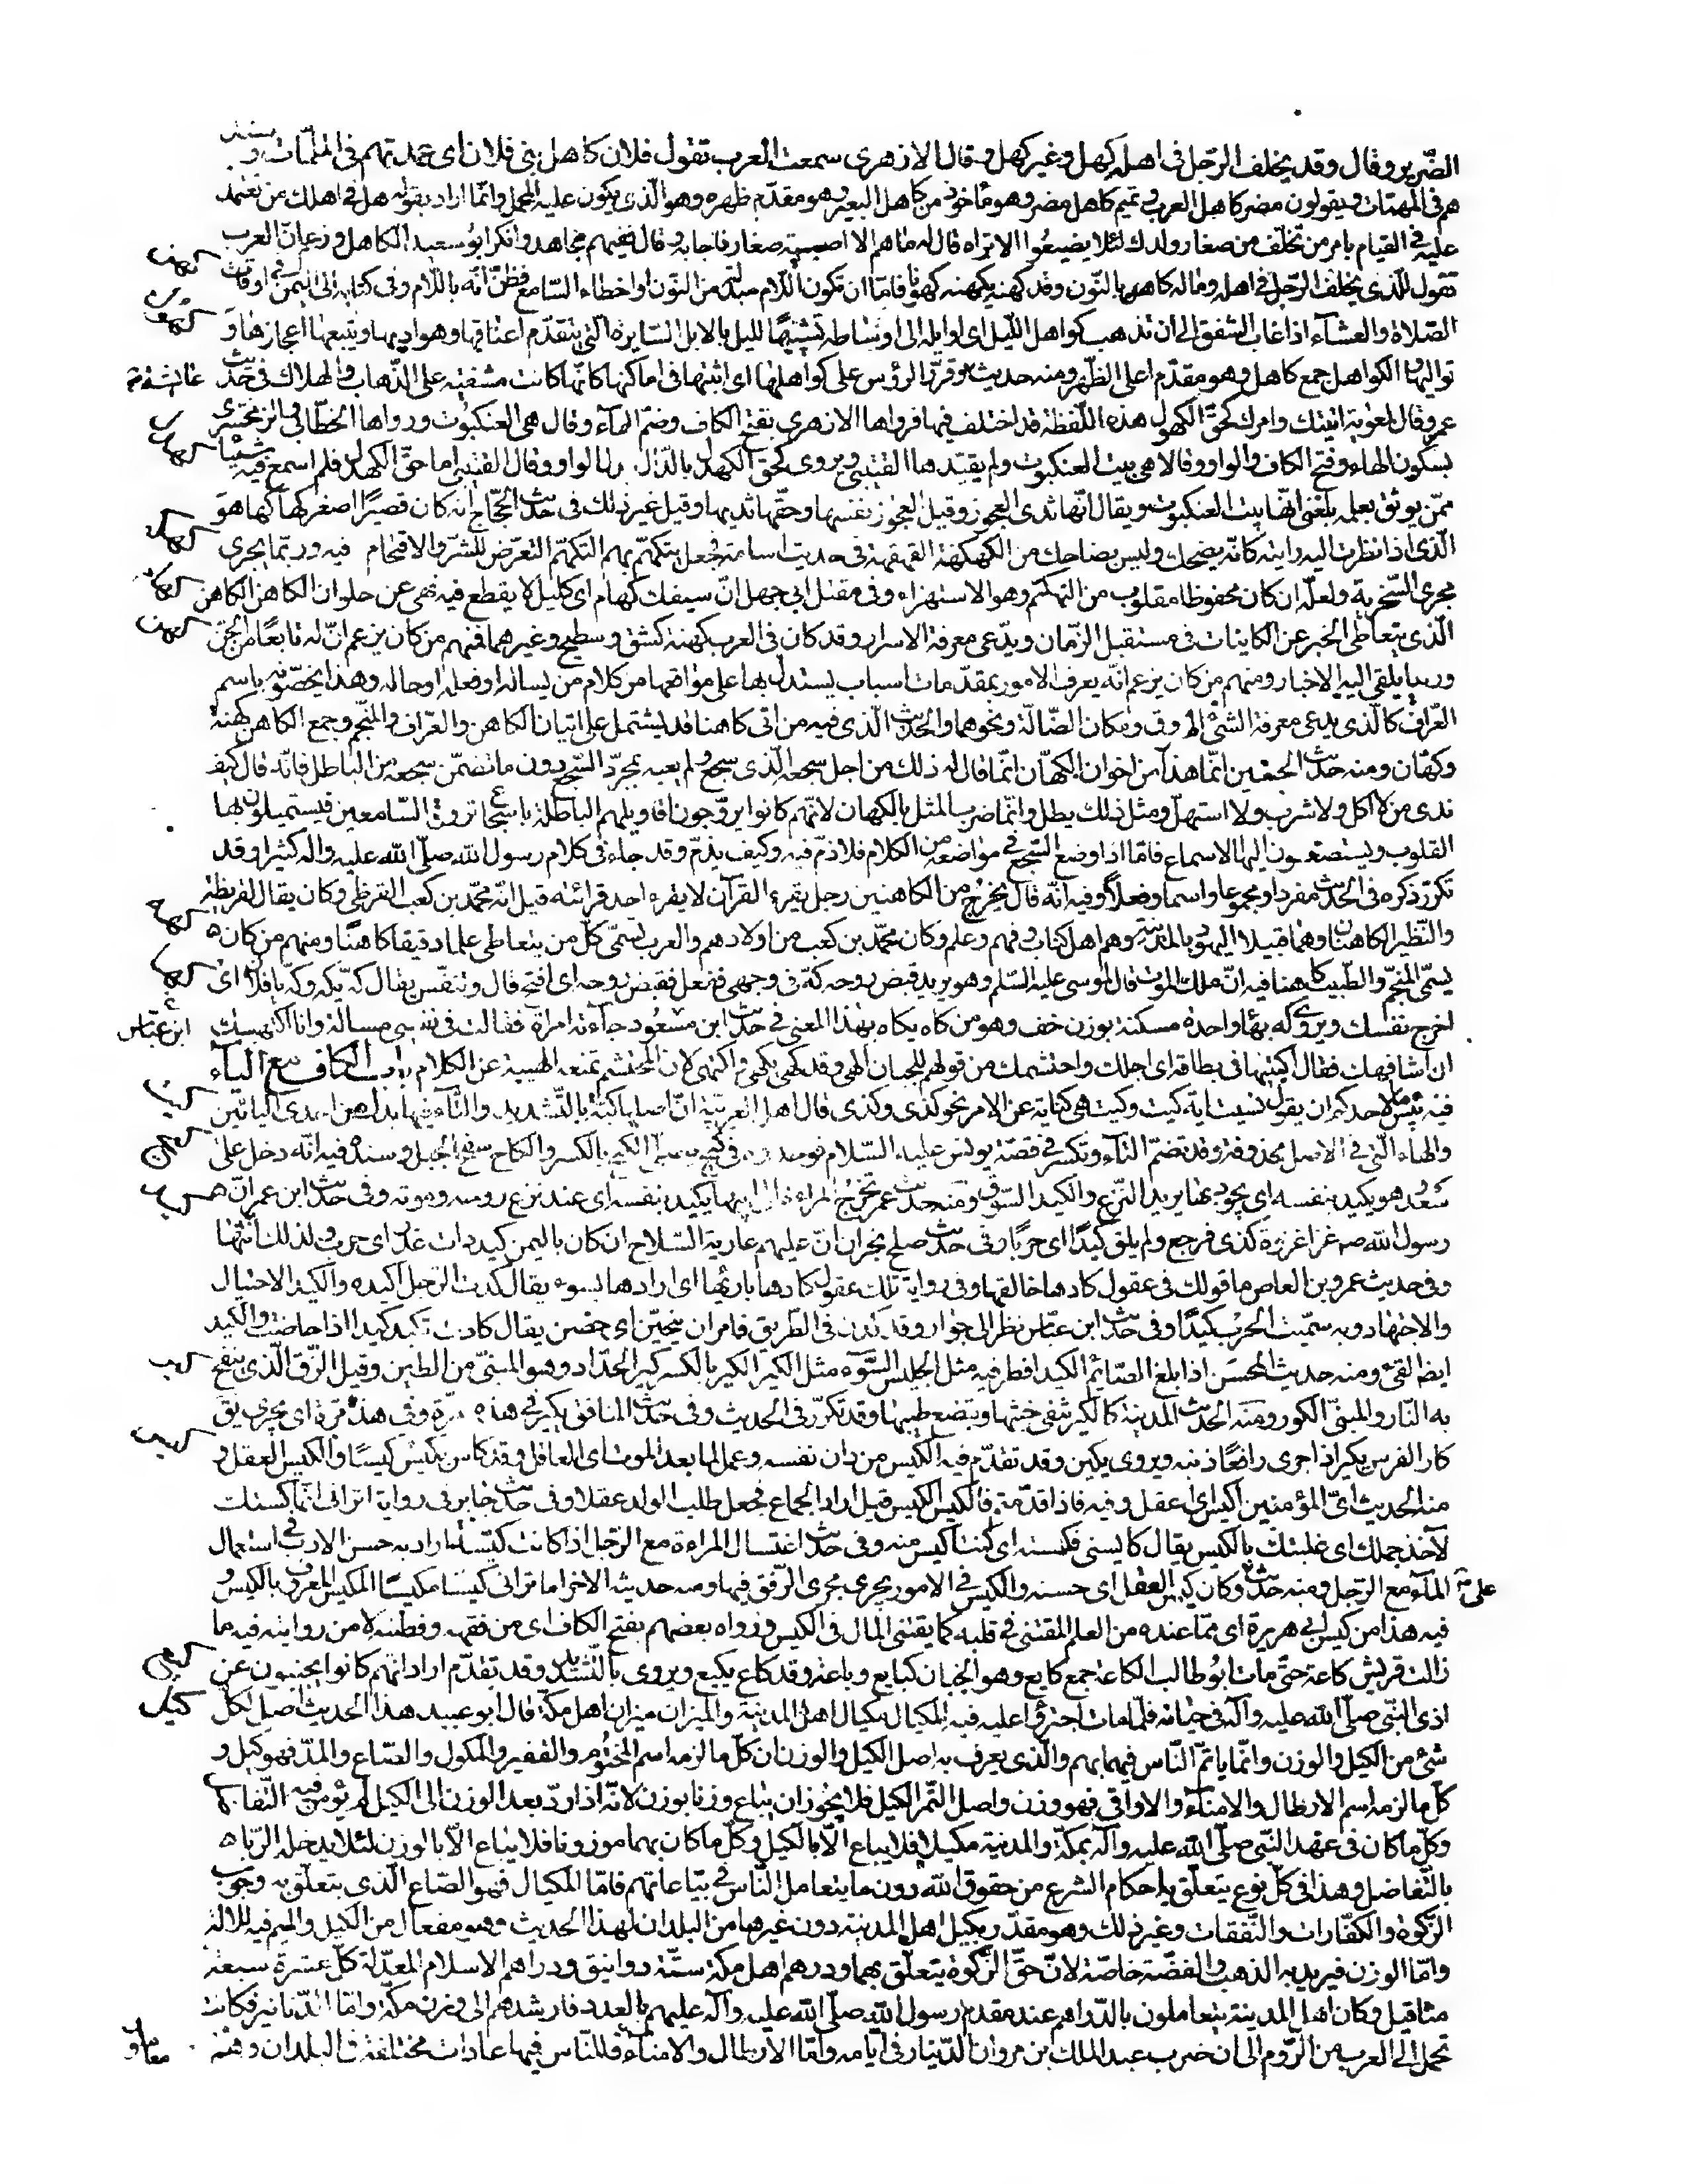 الضّرير وقال وقد يخلف الرّجل فى اهله كهل وغير كهل وقال الازهرى سمعت العرب تقول فلان كاهل بنى فلان اى عمدتهم فى الملمّات و
هم فى المهمّات ويقولون مضر كاهل العرب وتميم كاهل مضر وهو ماخوذ من كاهل البعير وهو مقدّم ظهره وهو الّذى يكون عليه المحمل وانّما اراد بقوله هل فى اهلك من تعتمد
عليه فى القيام بامر من تخلّف من صغار ولدك لئلا يضيعوا الا تراه قال له ما هم الا اصيبية صغار فاجابه وقال ففيهم فجاهد وانكر ابو سعيد الكاهل وزعم انّ العرب
تقول للّذى يخلف الرّجل فى اهله وماله كاهن بالنّون وقد كهنه يكهنه كهونا فامّا ان تكون اللّام مبدلة من النّون او اخطاء السّامع فظنّ انّه باللّام وفى كتابه الى اليمن فى اوقات
الصّلاة والعشآء اذا غاب الشفق الى ان تذهب كواهل اللّيل اى اوايله الى اوساطه تشبيها لليل بالابل السّايرة الّتى يتقدّم اعناقها وهواديها ويتبعها اعجازها و
تواليها والكواهل جمع كاهل وهو مقدّم اعلى الظّهر ومنه حديث وقرّر الرؤس على كواهلها اى اثبتها فى اماكنها كانّها كانت مشفية على الذّهاب والهلاك فى حديث
عمرو قال لمعوية اتيتك وامرك كحقّ الكهول هذه اللّفظة قد اختلف فيها فرواها الازهرى بفتح الكاف وضمّ الهآء وقال هى العنكبوت ورواها الخطّابى والزّمخشرى
بسكون الهاء وفتح الكاف والواو وقالا هى بيت العنكبوت ولم يقيّدها القتيبى ويروى كحق الكهدل بالدّال بدل الواو وقال القتيبى اما حقّ الكهدل فلم اسمع فيه شيئا
ممّن يوثق بعلمه بلغنى انّها بيت العنكبوت ويقال انّها ثدى العجوز وقيل العجوز نفسها وحقّها ثديها وقيل غير ذلك فى حديث الحجّاج انّه كان قصيرًا اصفر كهاكها هو
الّذى اذا نظرت اليه رايته كانّه يضحك وليس بضاحك من الكهكهة القهقهة فى حديث اسامة فجعل يتكهّم بهم التكهّم التعرّض للشرّ والاقتحام فيه وربّما يجرى
مجرى السّخرية ولعلّه ان كان محفوظا مقلوب من التهكّم وهو الاستهزاء وفى مقتل ابى جهل انّ سيفك كهام اى كليل لا يقطع فيه نهى عن حلوان الكاهن الكاهن
الّذى يتعاطى الخبر عن الكاينات فى مستقبل الزّمان ويدّعى معرفة الاسرار وقد كان فى العرب كهنة كشق وسطيح وغيرهما فمنهم من كان يزعم انّ له تابعًا من الجنّ
ورئيا يلقى اليه الاخبار ومنهم من كان يزعم انّه يعرف الامور بمقدّمات اسباب يستدل بها على مواقعها من كلام من يساله او فعله او حاله وهذا يخصّونه باسم
العرّاف كالّذى يدعى معرفة الشئ المسروق ومكان الضّالّة ونحوهما والحديث الّذى فيه من اتى كاهنا قد يشتمل على اتيان الكاهن والعرّاف والمنجّم وجمع الكاهن كهنة
وكهّان ومنه حديث الجنين انّما هذا من اخوان الكهّان انّما قال له ذلك من اجل سجعه الّذى سجع ولم يعبه بمجرّد السّجع دون ما تضمّن سجعه من الباطل فانّه قال كيف
ندى من لا اكل ولا شرب ولا استهلّ ومثل ذلك يطل وانّما ضرب المثل بالكهان لانّهم كانوا يروّجون اقاويلهم الباطلة باسجاع تروق السّامعين فيستميلون بها
القلوب ويستصغون اليها الاسماع فامّا اذا وضع السّجع فى مواضعه من الكلام فلا ذمّ فيه وكيف يذمّ وقد جاء فى كلام رسول الله صلّى الله عليه واله كثيرا وقد
تكرّر ذكره فى الحديث مفردا ومجموعا واسما وفعلا وفيه انّه قال يخرج من الكاهنين رجل يقرء القرآن لا يقرء احد قرائته قيل انّه محمّد بن كعب القرظى وكان يقال لقريظة
والنّظير الكاهنان وهما قبيلا اليهود بالمدينة وهم اهل كتاب وفهم وعلم وكان محمّد بن كعب من اولادهم والعرب تسمّى كلّ من يتعاطى علما دقيقا كاهنًا ومنهم من كان
يسمّى المنجّم والطّبيب كاهنا فيه انّ ملك الموت قال لموسى عليه السّلم وهو يريد قبض روحه كهّ فى وجهى ففعل فقبض روحه اى افتح فاك وتنفّس يقال كهّ يكهّ وكهّ يا فلان اى
اخرج نفسك ويروى كه بهآء واحدة مسكنة بوزن خف وهو من كاه يكاه بهذا المعنى فى حديث ابن مسعود جاءته امرأة فقالت فى نفسى مسالة وانا اكتهيك
ان اشافهك فقال اكتبيها فى بطاقة اى اجلك واحتشمك من قولهم للجبان اكهى وقد كهى يكهى واكتهى لان المحتشم تمنعه الهيبة عن الكلام باب الكاف مع اليآء
فيه بئس ما لاحدكم ان يقول نسيت اية كيت وكيت هى كناية عن الامر نحو كذى وكذى قال اهل العربيّة انّ اصلها كيّة بالتّشديد والتّآء فيها بدل من احدى اليائين
والهاء الّتى فى الاصل محذوفة وقد تضمّ التّآء وتكسر فى قصّة يونس عليه السّلام فوجدوه فى كيح يصلى الكيح بالكسر والكاح سفح الجبل وسنده فيه انّه دخل على
سعد وهو يكيد بنفسه اى يجود بها يريد النّزع والكيد السّوق ومنه حديث عمر تخرج المراءة الى ابيها يكيد بنفسه اى عند نزع روحه وموته وفى حديث ابن عمر انّ
رسول الله صه غزا غزوة كذى فرجع ولم يلق كيدًا اى حربًا وفى حديث صلح نجران انّ عليهم عارية السّلاح ان كان باليمن كيد ذات غدر اى حرب ولذلك انّثها
وفى حديث عمرو بن العاص ما قولك فى عقول كادها خالقها وفى رواية تلك عقول كادها بارئها اى ارادها بسوء يقال كدت الرّجل اكيده والكيد الاحتيال
والاجتهاد وبه سمّيت الحرب كيدًا وفى حديث ابن عبّاس نظر الى جوار وقد كدن فى الطّريق فامر ان ينحّين اى حضن يقال كادت تكيد كيدا اذا حاضت والكيد
ايضا القئ ومنه حديث الحسن اذا بلغ الصّائم الكيد افطر فيه مثل الجليس السّوء مثل الكير الكير بالكسر كير الحدّاد وهو المبنىّ من الطين وقيل الزّقّ الّذى ينفخ
به النّار والمبنى الكور ومنه الحديث المدينة كالكير تنفى خبثها وينصع طيبها وقد تكرّر فى الحديث وفى حديث المنافق يكير فى هذه مرّة وفى هذه مرّة اى يجرى يق
كار الفرس يكير اذا جرى رافعًا ذنبه ويروى يكبن وقد تقدّم فيه الكيس من دان نفسه وعمل لما بعد الموت اى العاقل وقد كاس يكيس كيسًا والكيس العقل و
منه الحديث اىّ المؤمنين اكيس اى اعقل وفيه فاذا قدّمتم فالكيس الكيس قيل اراد الجماع فجعل طلب الولد عقلا وفى حديث جابر فى رواية اترانى انّما كستك
لآخذ جملك اى غلبتك بالكيس يقال كايسنى فكسته اى كنت اكيس منه وفى حديث اغتسال المراءة مع الرّجل اذا كانت كيّسة اراد به حسن الادب فى استعمال
المآء مع الرّجل ومنه حديث وكان كيس الفعل اى حسنه والكيس فى الامور يجرى مجرى الرّفق فيها ومنه حديثه الاخر اما ترانى كيّسا مكيّسًا المكيس المعروف بالكيس و
فيه هذا من كيس ابى هريرة اى ممّا عنده من العلم المقتنى فى قلبه كما يقتنى المال فى الكيس ورواه بعضهم بفتح الكاف اى من فقهه وفطنته لا من روايته فيه ما
زالت قريش كاعة حتّى مات ابو طالب الكاعة جمع كايع وهو الجبان كبايع وباعة وقد كاع يكيع ويروى بالتّشديد وقد تقدّم اراد انّهم كانوا يجبنون عن
اذى النّبى صلّى الله عليه وآله فى حياته فلمّا مات اجترؤا عليه فيه المكيال مكيال اهل المدينة والميزان ميزان اهل مكّة قال ابو عبيد هذا الحديث اصل لكلّ
شئ من الكيل والوزن وانّما ياتمّ النّاس فيهما بهم والّذى يعرف به اصل الكيل والوزن ان كلّ ما لزمه اسم المختوم والقفيز والمكوك والصّاع والمدّ فهو كيل و
كلّ ما لزمه اسم الارطال والامنآء والاواقى فهو وزن واصل التّمر الكيل فلا يجوز ان يباع وزنا بوزن لانّه اذا ردّ بعد الوزن الى الكيل لم يؤمن فيه التّفاضل
وكلّ ما كان فى عهد النّبى صلّى الله عليه وآله بمكّة والمدينة مكيلا فلا يباع الّا بالكيل وكلّ ما كان بهما موزونا فلا يباع الّا بالوزن لئلا يدخله الرّبا
بالتّفاضل وهذا فى كلّ نوع يتعلّق باحكام الشرع من حقوق الله دون ما يتعامل النّاس فى بيّاعاتهم فامّا المكيال فهو الصّاع الّذى يتعلّق به وجوب
الزّكوة والكفّارات والنّفقات وغير ذلك وهو مقدّر بكيل اهل المدينة دون غيرها من البلدان لهذا الحديث وهو مفعال من الكيل والميم فيه للالة
وامّا الوزن فيريد به الذهب والفضّة خاصّة لانّ حقّ الزّكوة يتعلّق بهما ودرهم اهل مكّة ستّة دوانيق ودراهم الاسلام المعدّلة كلّ عشرة سبعة
مثاقيل وكان اهل المدينة يتعاملون بالدّراهم عند مقدم رسول الله صلّى الله عليه وآله عليهم بالعدد فارشدهم الى وزن مكّة وامّا الدّنانير فكانت
تحمل الى العرب من الرّوم الى ان ضرب عبد الملك بن مروان الدّينار فى ايّامه وامّا الارطال والامنآء فللنّاس فيها عادات مختلفة فى البلدان وهم
كهول
كهكه
كهم
كهن
ابن عبّاس
علىّ
كيل